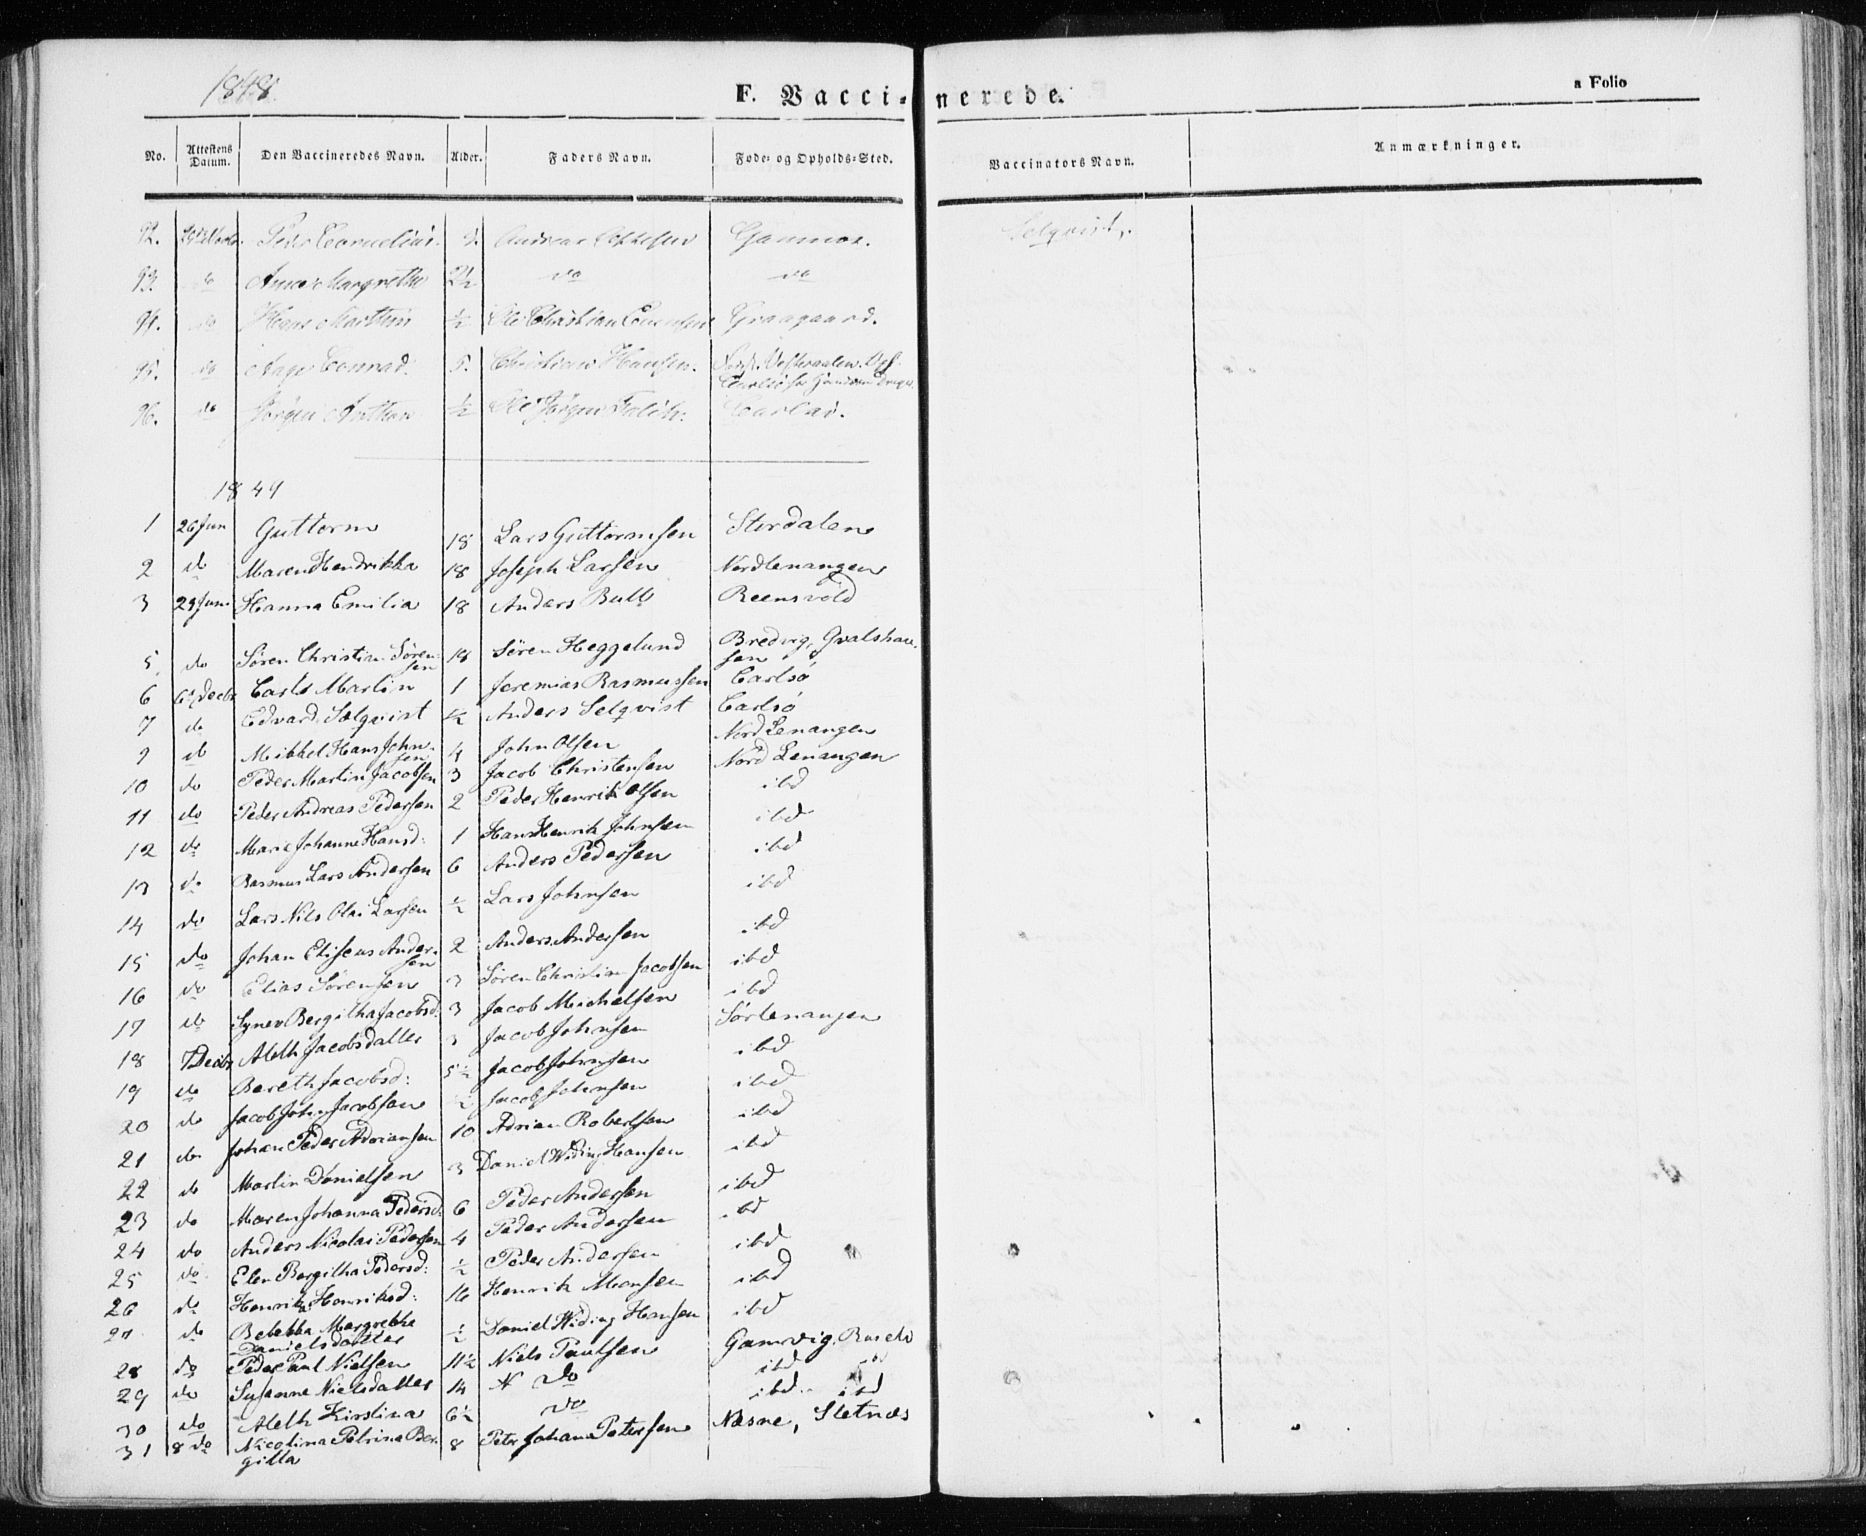 1848.
F. Vacci-nerede.
a Folio
No. Attestens Datum. Den Vaccineredes Navn. Alder. Faders Navn. Føde- og Opholds-Sted. Vaccinators Navn. Anmærkninger.
92. Peder Cornelius. Andreas Gammos. Selqvist.
93. do Anne Margrethe 2½ do do
94. do Hans Martin ½ Ole Christian Graagaard.
95. do Aage Conrad. 5. Christian Hansen.
96. do Jørgen Anthon ½ Ole Jørgen Carlsø.
1849
1 26 Jun Guttorm 18 Lars Guttormsen Stordalen
2 do Maren Hendrikka 18 Joseph Larsen Nordlenangen
3 29 Juni Hanna Emilia 18 Anders Bull Reensvold
5 do Søren Christian Søren-sen 18 Søren Heggelund Bredvig, Gvalshau-sen
6 6 Decbr Carls Martin 1 Jeremias Rasmussen Carlsø
7 do Edvard Selqvist ½ Anders Selqvist Carlsø
9 do Mikkel Hans John-sen 4 John Olsen Nord Lenangen
10 do Peder Martin Jacobsen 3 Jacob Christensen Nord Lenangen
11 do Peder Andreas Pedersen 2 Peder Henrik Olsen ibd
12 do Marie Johanne Hansd: 1 Hans Henrik Johnsen ibd
13 do Rasmus Lars Andersen 6 Anders Pedersen ibd
14 do Lars Nils Olai Larsen ½ Lars Johnsen ibd
15 do Johan Eliseus Ander-sen 2 Anders Andersen ibd
16 do Elias Sørensen 3 Søren Christian Jacobsen ibd
17 do Synev Bergitha Jacobsd: 3 Jacob Michelsen ibd
18 7 Decbr Aleth Jacobsdatter 3 Jacob Johnsen Sørlenangen
19 do Bereth Jacobsd: 5½ Jacob Johnsen ibd
20 do Jacob John Jacobsen ½ Jacob Johnsen ibd
21 do Johan Peder Adriansen 10 Adrian Robertsen ibd
22 do Martin Danielsen 3 Daniel Widing Hansen ibd
23 do Maren Johanna Pedersd: 6 Peder Andersen ibd
24 do Anders Nicolai Pedersen 4 Peder Andersen ibd
25 do Elen Bergitha Pedersd: ½ Peder Andersen ibd
26 do Henrika Henriksd: 16 Henrik Monsen ibd
27 do Bebekka Margrethe Danielsdatter ½ Daniel Widing Hansen ibd
28 do Peder Paul Nielsen 11½ Niels Paulsen Gamvig,
29 do Susanne Nielsdatter 14 N do ibd ibd
30 do Aleth Kirstina 6½ do ibd ibd
31 8 do Nicolina Petrina Ber-gitta 8 Peter Johan Petersen Næsne, Sletnæs